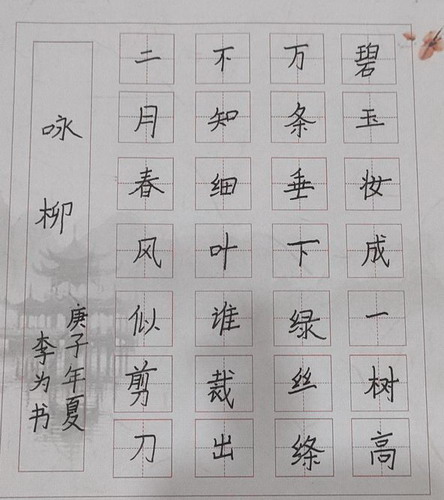 碧玉妆成一树高
万条垂下绿丝绦
不知细叶谁裁出
二月春风似剪刀
咏柳
庚子年夏
李为书